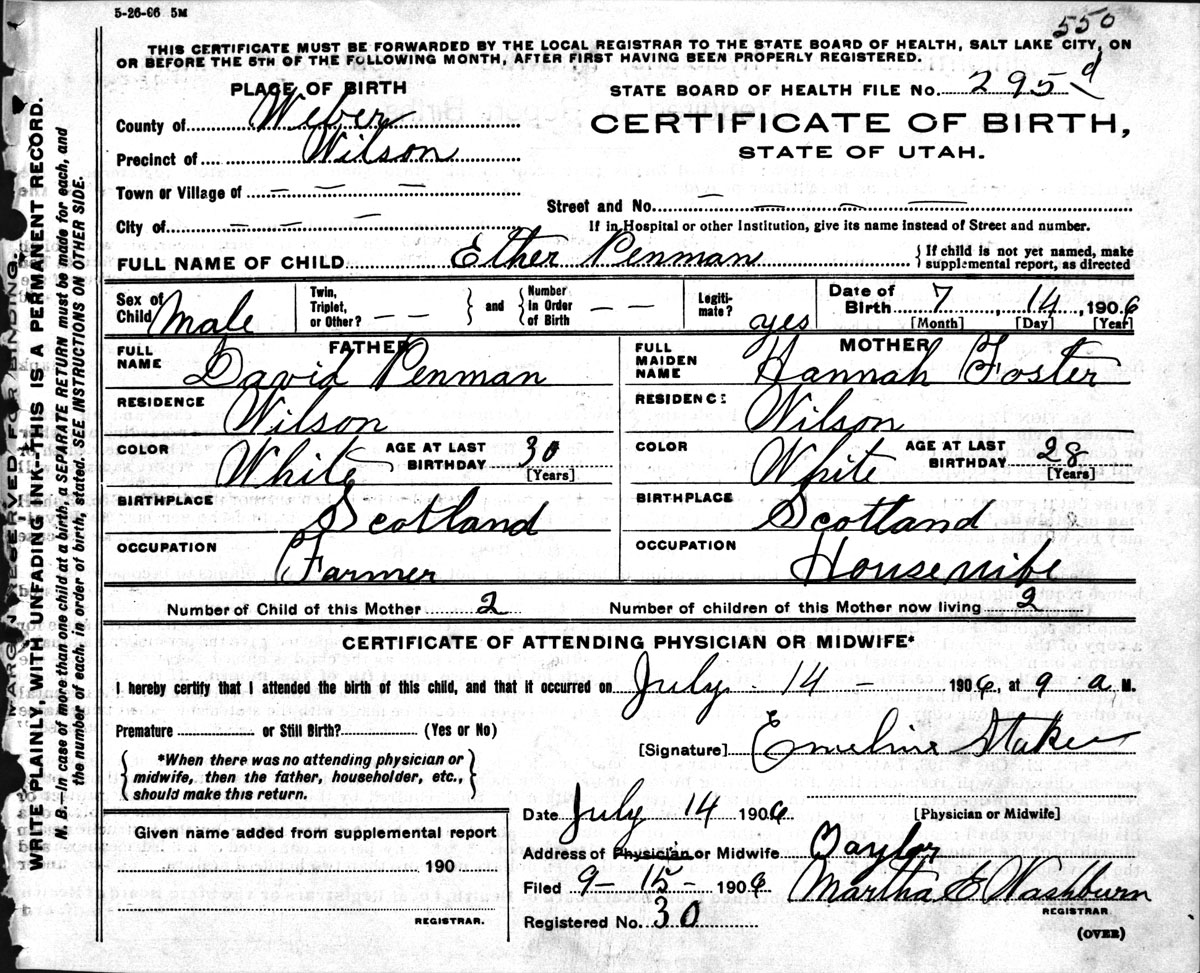 5-26-06 5M
550
THIS CERTIFICATE MUST BE FORWARDED BY THE LOCAL REGISTRAR TO THE STATE BOARD OF HEALTH, SALT LAKE CITY, ON
OR BEFORE THE 5TH OF THE FOLLOWING MONTH, AFTER FIRST HAVING BEEN PROPERLY REGISTERED.
PLACE OF BIRTH
STATE BOARD OF HEALTH FILE No. 295 d
County of Weber
CERTIFICATE OF BIRTH,
Precinct of Wilson
STATE OF UTAH.
Town or Village of — — —
Street and No. — — — —
City of — — —
If in Hospital or other Institution, give its name instead of Street and number.
FULL NAME OF CHILD Ether Penman { If child is not yet named, make supplemental report, as directed
Sex of Child Male
Twin, Triplet, or Other? — — } and { Number in Order of Birth — —
Legitimate? yes
Date of Birth 7, 14, 1906
[Month] [Day] [Year]
FATHER
FULL NAME David Penman
RESIDENCE Wilson
COLOR White AGE AT LAST BIRTHDAY 30 [Years]
BIRTHPLACE Scotland
OCCUPATION Farmer
MOTHER
FULL MAIDEN NAME Hannah Foster
RESIDENCE Wilson
COLOR White AGE AT LAST BIRTHDAY 28 [Years]
BIRTHPLACE Scotland
OCCUPATION Housewife
Number of Child of this Mother 2 Number of children of this Mother now living 2
CERTIFICATE OF ATTENDING PHYSICIAN OR MIDWIFE*
I hereby certify that I attended the birth of this child, and that it occurred on July 14 1906, at 9 a M.
Premature or Still Birth? (Yes or No)
[Signature] Emeline Staker
*When there was no attending physician or
midwife, then the father, householder, etc.,
should make this return.
[Physician or Midwife]
Date July 14 1906
Given name added from supplemental report
190
REGISTRAR.
Address of Physician or Midwife Taylor
Filed 9-15- 1906 Martha E Washburn
REGISTRAR
Registered No. 30
(OVER)
MARGIN RESERVED FOR BINDING.
WRITE PLAINLY, WITH UNFADING INK—THIS IS A PERMANENT RECORD.
N. B.—In case of more than one child at a birth, a SEPARATE RETURN must be made for each, and
the number of each, in order of birth, stated. SEE INSTRUCTIONS ON OTHER SIDE.